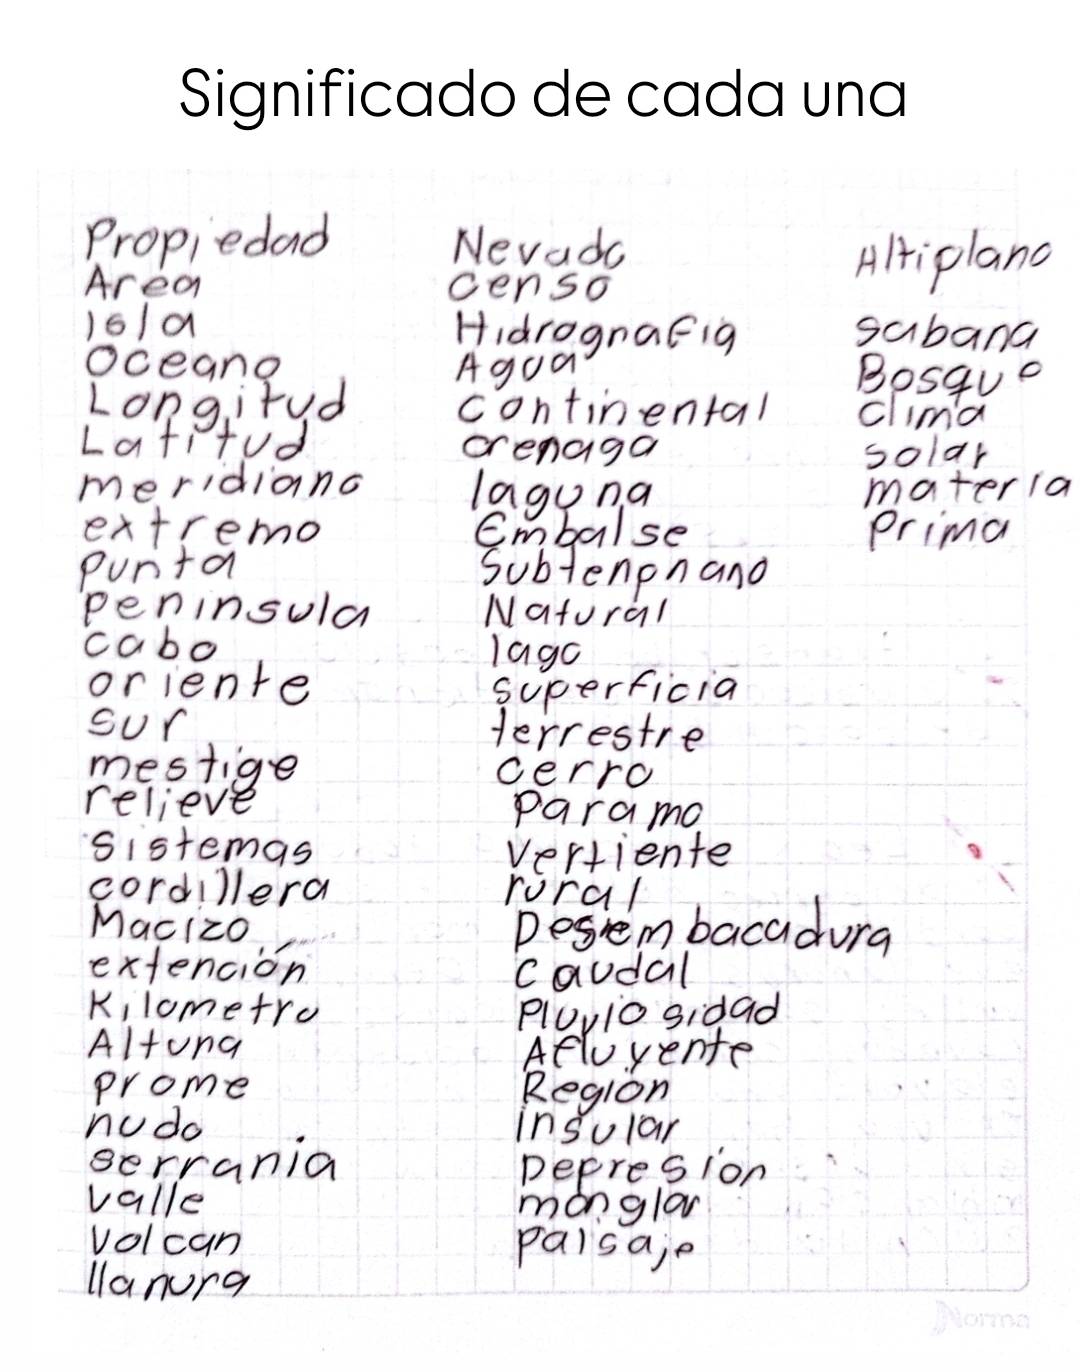 Significado de cada una
Propiedad
Area
Isla
Oceano
Longitud
Latitud
meridiano
extremo
punta
peninsula
cabo
oriente
sur
mestige
relieve
sistemas
cordillera
Macizo
extención
Kilometro
Altura
prome
nudo
serrania
valle
volcan
llanura
Nevado
censo
Hidrografia
Agua
continental
cienaga
laguna
Embalse
Natural
lago
superficia
terrestre
cerro
paramo
vertiente
rural
Desembacadura
caudal
Pluviosidad
Afluyente
Región
insular
Depresion
manglar
paisaje
Altiplano
sabana
Bosque
clima
solar
materia
prima
Norma